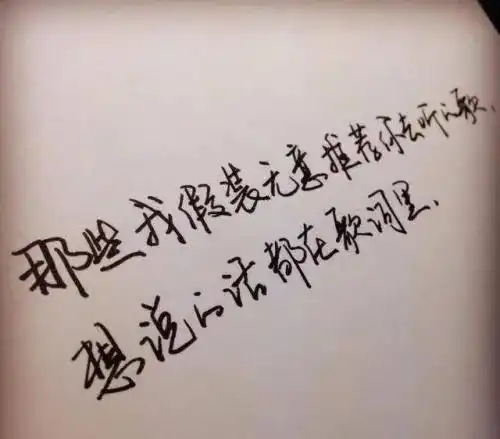 那些我假装无意推荐你去听的歌.
想说的话都在歌词里.